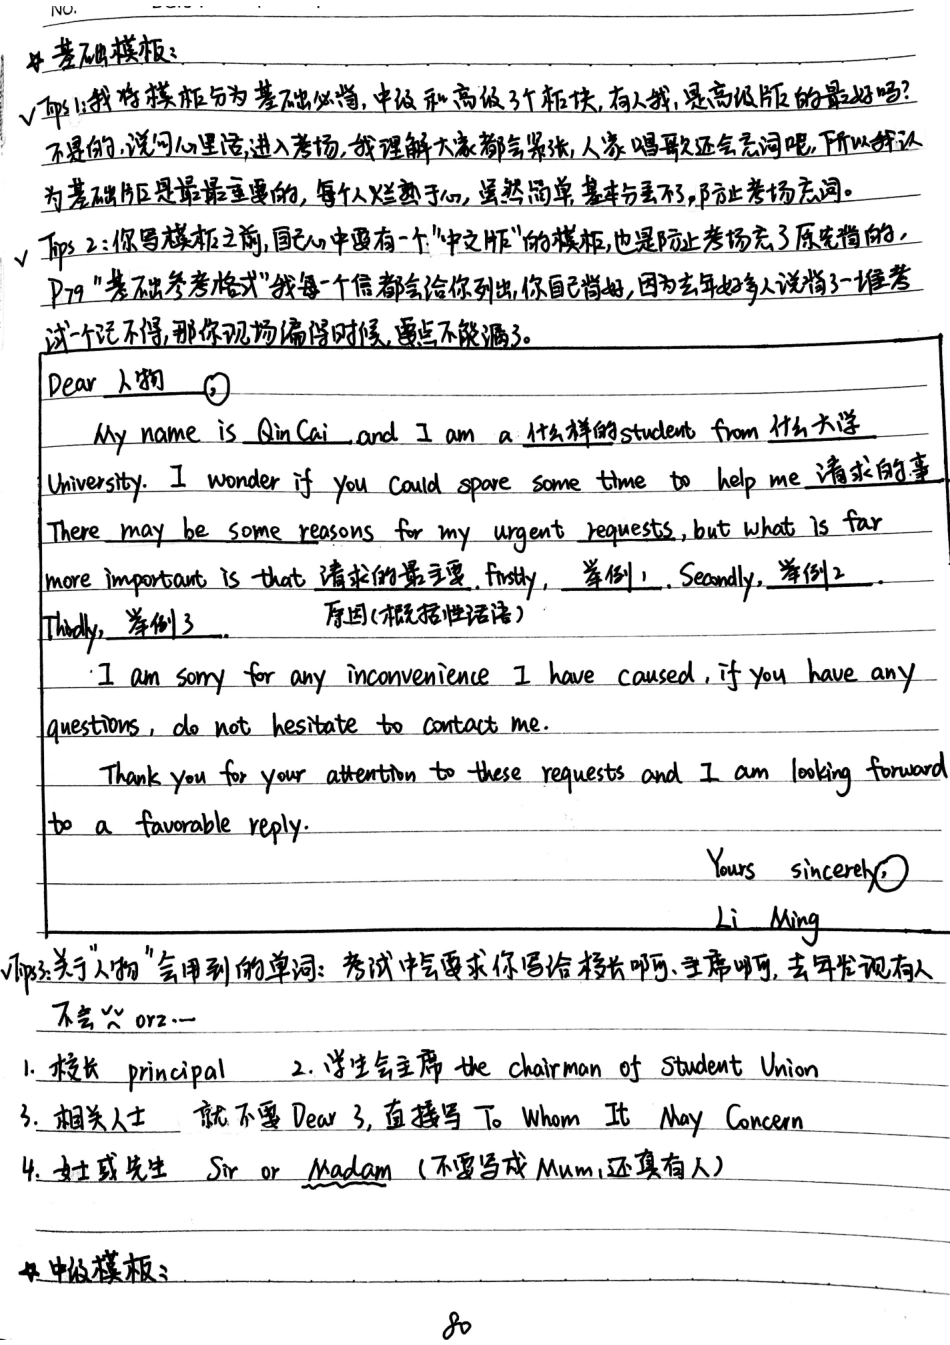 NO.
☆ 基础模板:
√ Tips 1:我将模板分为基础必背,中级和高级3个板块,有人我,是高级版的最好吗?
不是的,说句心里话,进入考场,我理解大家都会紧张,人家唱歌还会忘词呢,所以我认
为基础版是最最重要的,每个人烂熟于心,虽然简单,基本分丢不了,防止考场忘词。
√ Tips 2:你写模板之前,自己心中要有一个"中文版"的模板,也是防止考场忘了原先背的,
P79 "基础参考格式"我每一个信都会给你列出,你自己背好,因为去年好多人说背了一堆考
试一个记不得,那你现场编得时候,要点不能漏了。
Dear 人物 ,
My name is Qin Cai and I am a 什么样的 student from 什么大学
University. I wonder if you could spare some time to help me 请求的事
There may be some reasons for my urgent requests, but what is far
more important is that 请求的最主要. firstly, 举例1. Secondly, 举例2.
原因(概括性话语)
Thirdly, 举例3.
I am sorry for any inconvenience I have caused, if you have any
questions, do not hesitate to contact me.
Thank you for your attention to these requests and I am looking forward
to a favorable reply.
Yours sincerely,
Li Ming
√Tips3:关于"人物"会用到的单词: 考试中会要求你写给校长啊、主席啊, 去年发现有人
不会 orz...
1. 校长 principal 2. 学生会主席 the chairman of Student Union
3. 相关人士 就不要 Dear 了,直接写 To Whom It May Concern
4. 女士或先生 Sir or Madam (不要写成 Mum,还真有人)
☆ 中级模板:
80